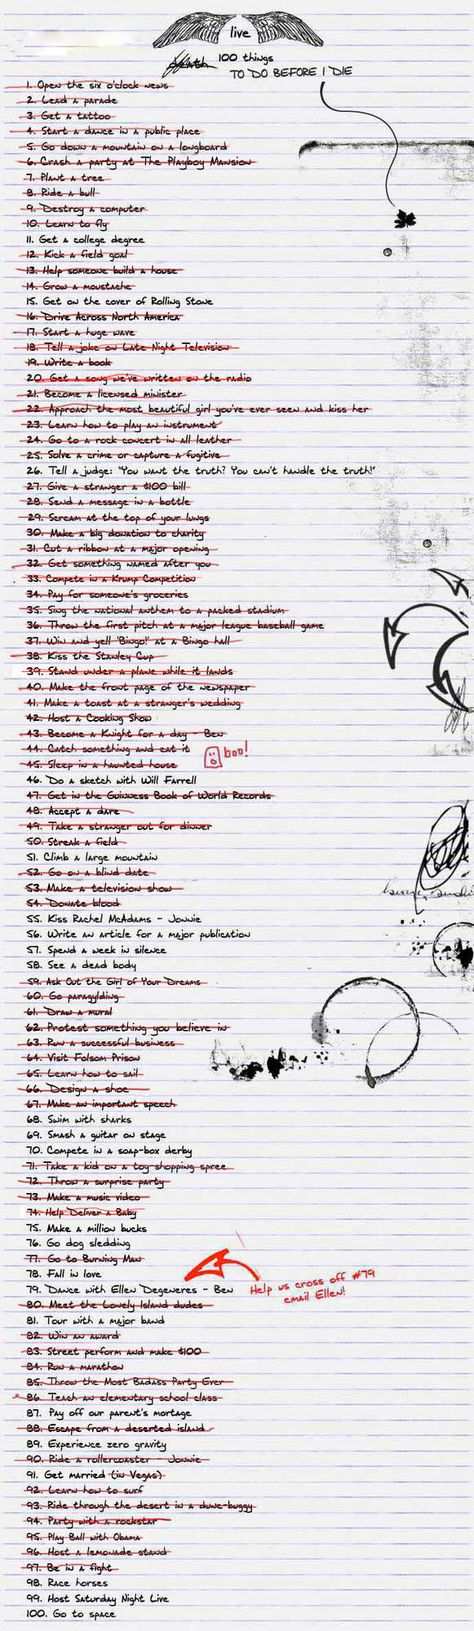 live
death 100 things
TO DO BEFORE I DIE
1. Open the six o'clock news
2. Lead a parade
3. Get a tattoo
4. Start a dance in a public place
5. Go down a mountain on a longboard
6. Crash a party at The Playboy Mansion
7. Plant a tree
8. Ride a bull
9. Destroy a computer
10. Learn to fly
11. Get a college degree
12. Kick a field goal
13. Help someone build a house
14. Grow a moustache
15. Get on the cover of Rolling Stone
16. Drive Across North America
17. Start a huge wave
18. Tell a joke on Late Night Television
19. Write a book
20. Get a song we've written on the radio
21. Become a licensed minister
22. Approach the most beautiful girl you've ever seen and kiss her
23. Learn how to play an instrument
24. Go to a rock concert in all leather
25. Solve a crime or capture a fugitive
26. Tell a judge: "You want the truth? You can't handle the truth!"
27. Give a stranger a $100 bill
28. Send a message in a bottle
29. Scream at the top of your lungs
30. Make a big donation to charity
31. Cut a ribbon at a major opening
32. Get something named after you
33. Compete in a Krump Competition
34. Pay for someone's groceries
35. Sing the national anthem to a packed stadium
36. Throw the first pitch at a major league baseball game
37. Win and yell "Bingo!" at a Bingo hall
38. Kiss the Stanley Cup
39. Stand under a plane while it lands
40. Make the front page of the newspaper
41. Make a toast at a stranger's wedding
42. Host a Cooking Show
43. Become a Knight for a day - Ben
44. Catch something and eat it
boo!
45. Sleep in a haunted house
46. Do a sketch with Will Farrell
47. Get in the Guinness Book of World Records
48. Accept a dare
49. Take a stranger out for dinner
50. Streak a field
51. Climb a large mountain
52. Go on a blind date
53. Make a television show
54. Donate blood
55. Kiss Rachel McAdams - Jonnie
56. Write an article for a major publication
57. Spend a week in silence
58. See a dead body
59. Ask Out the Girl of Your Dreams
60. Go paragylding
61. Draw a mural
62. Protest something you believe in
63. Run a successful business
64. Visit Folsom Prison
65. Learn how to sail
66. Design a shoe
67. Make an important speech
68. Swim with sharks
69. Smash a guitar on stage
70. Compete in a soap-box derby
71. Take a kid on a toy shopping spree
72. Throw a surprise party
73. Make a music video
74. Help Deliver a Baby
75. Make a million bucks
76. Go dog sledding
77. Go to Burning Man
78. Fall in love
79. Dance with Ellen Degeneres - Ben
Help us cross off #79
email Ellen!
80. Meet the Lonely Island dudes
81. Tour with a major band
82. Win an award
83. Street perform and make $100
84. Run a marathon
85. Throw the Most Badass Party Ever
86. Teach an elementary school class
87. Pay off our parent's mortage
88. Escape from a deserted island
89. Experience zero gravity
90. Ride a rollercoaster - Jonnie
91. Get married (in Vegas)
92. Learn how to surf
93. Ride through the desert in a dune-buggy
94. Party with a rockstar
95. Play Ball with Obama
96. Host a lemonade stand
97. Be in a fight
98. Race horses
99. Host Saturday Night Live
100. Go to space